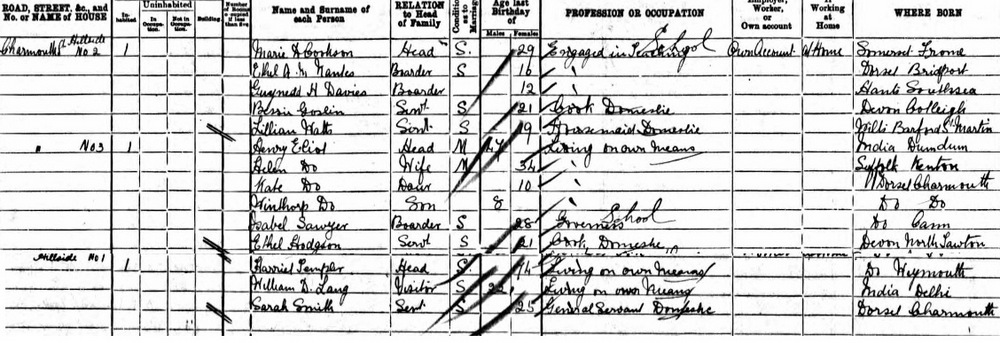 ROAD, STREET, &c., and No. or NAME of HOUSE
Uninhabited
In Occupation.
Not in Occupation.
Building.
Name and Surname of each Person
RELATION to Head of Family
Age last Birthday of
Males
Females
PROFESSION OR OCCUPATION
Employer, Worker, or Own account
If Working at Home
WHERE BORN
Charmouth Hillside No 2 1 Marie A Cookson Head S. 29 Engaged in Teaching School Own Account At Home Somerset Frome
Ethel A. M. Nantes Boarder S 16 Dorset Bridport
H Davies Boarder 12 Hants Southsea
Bessie Goslin Servt S 21 Cook Domestic Devon Colleigh
Lillian Watts Servt. S 19 Housemaid Domestic Wilts Barford St Martin
" No 3 1 Henry Eliot Head M 47 Living on own means India Dumdum
Helen Do Wife M 34 Suffolk Kenton
Kate Do Daur 10 Dorset Charmouth
Winthrop Do Son 8 Do Do
Isabel Sawyer Boarder S 28 Governess School Do Cann
Ethel Hodgson Servt S 21 Cook Domestic Devon North Tawton
Hillside No 1 1 Harriet Templer Head S 74 Living on own Means Do Weymouth
William D. Lang Visitor S 22 Living on own Means India Delhi
Sarah Smith Servt S 25 General Servant Domestic Dorset Charmouth